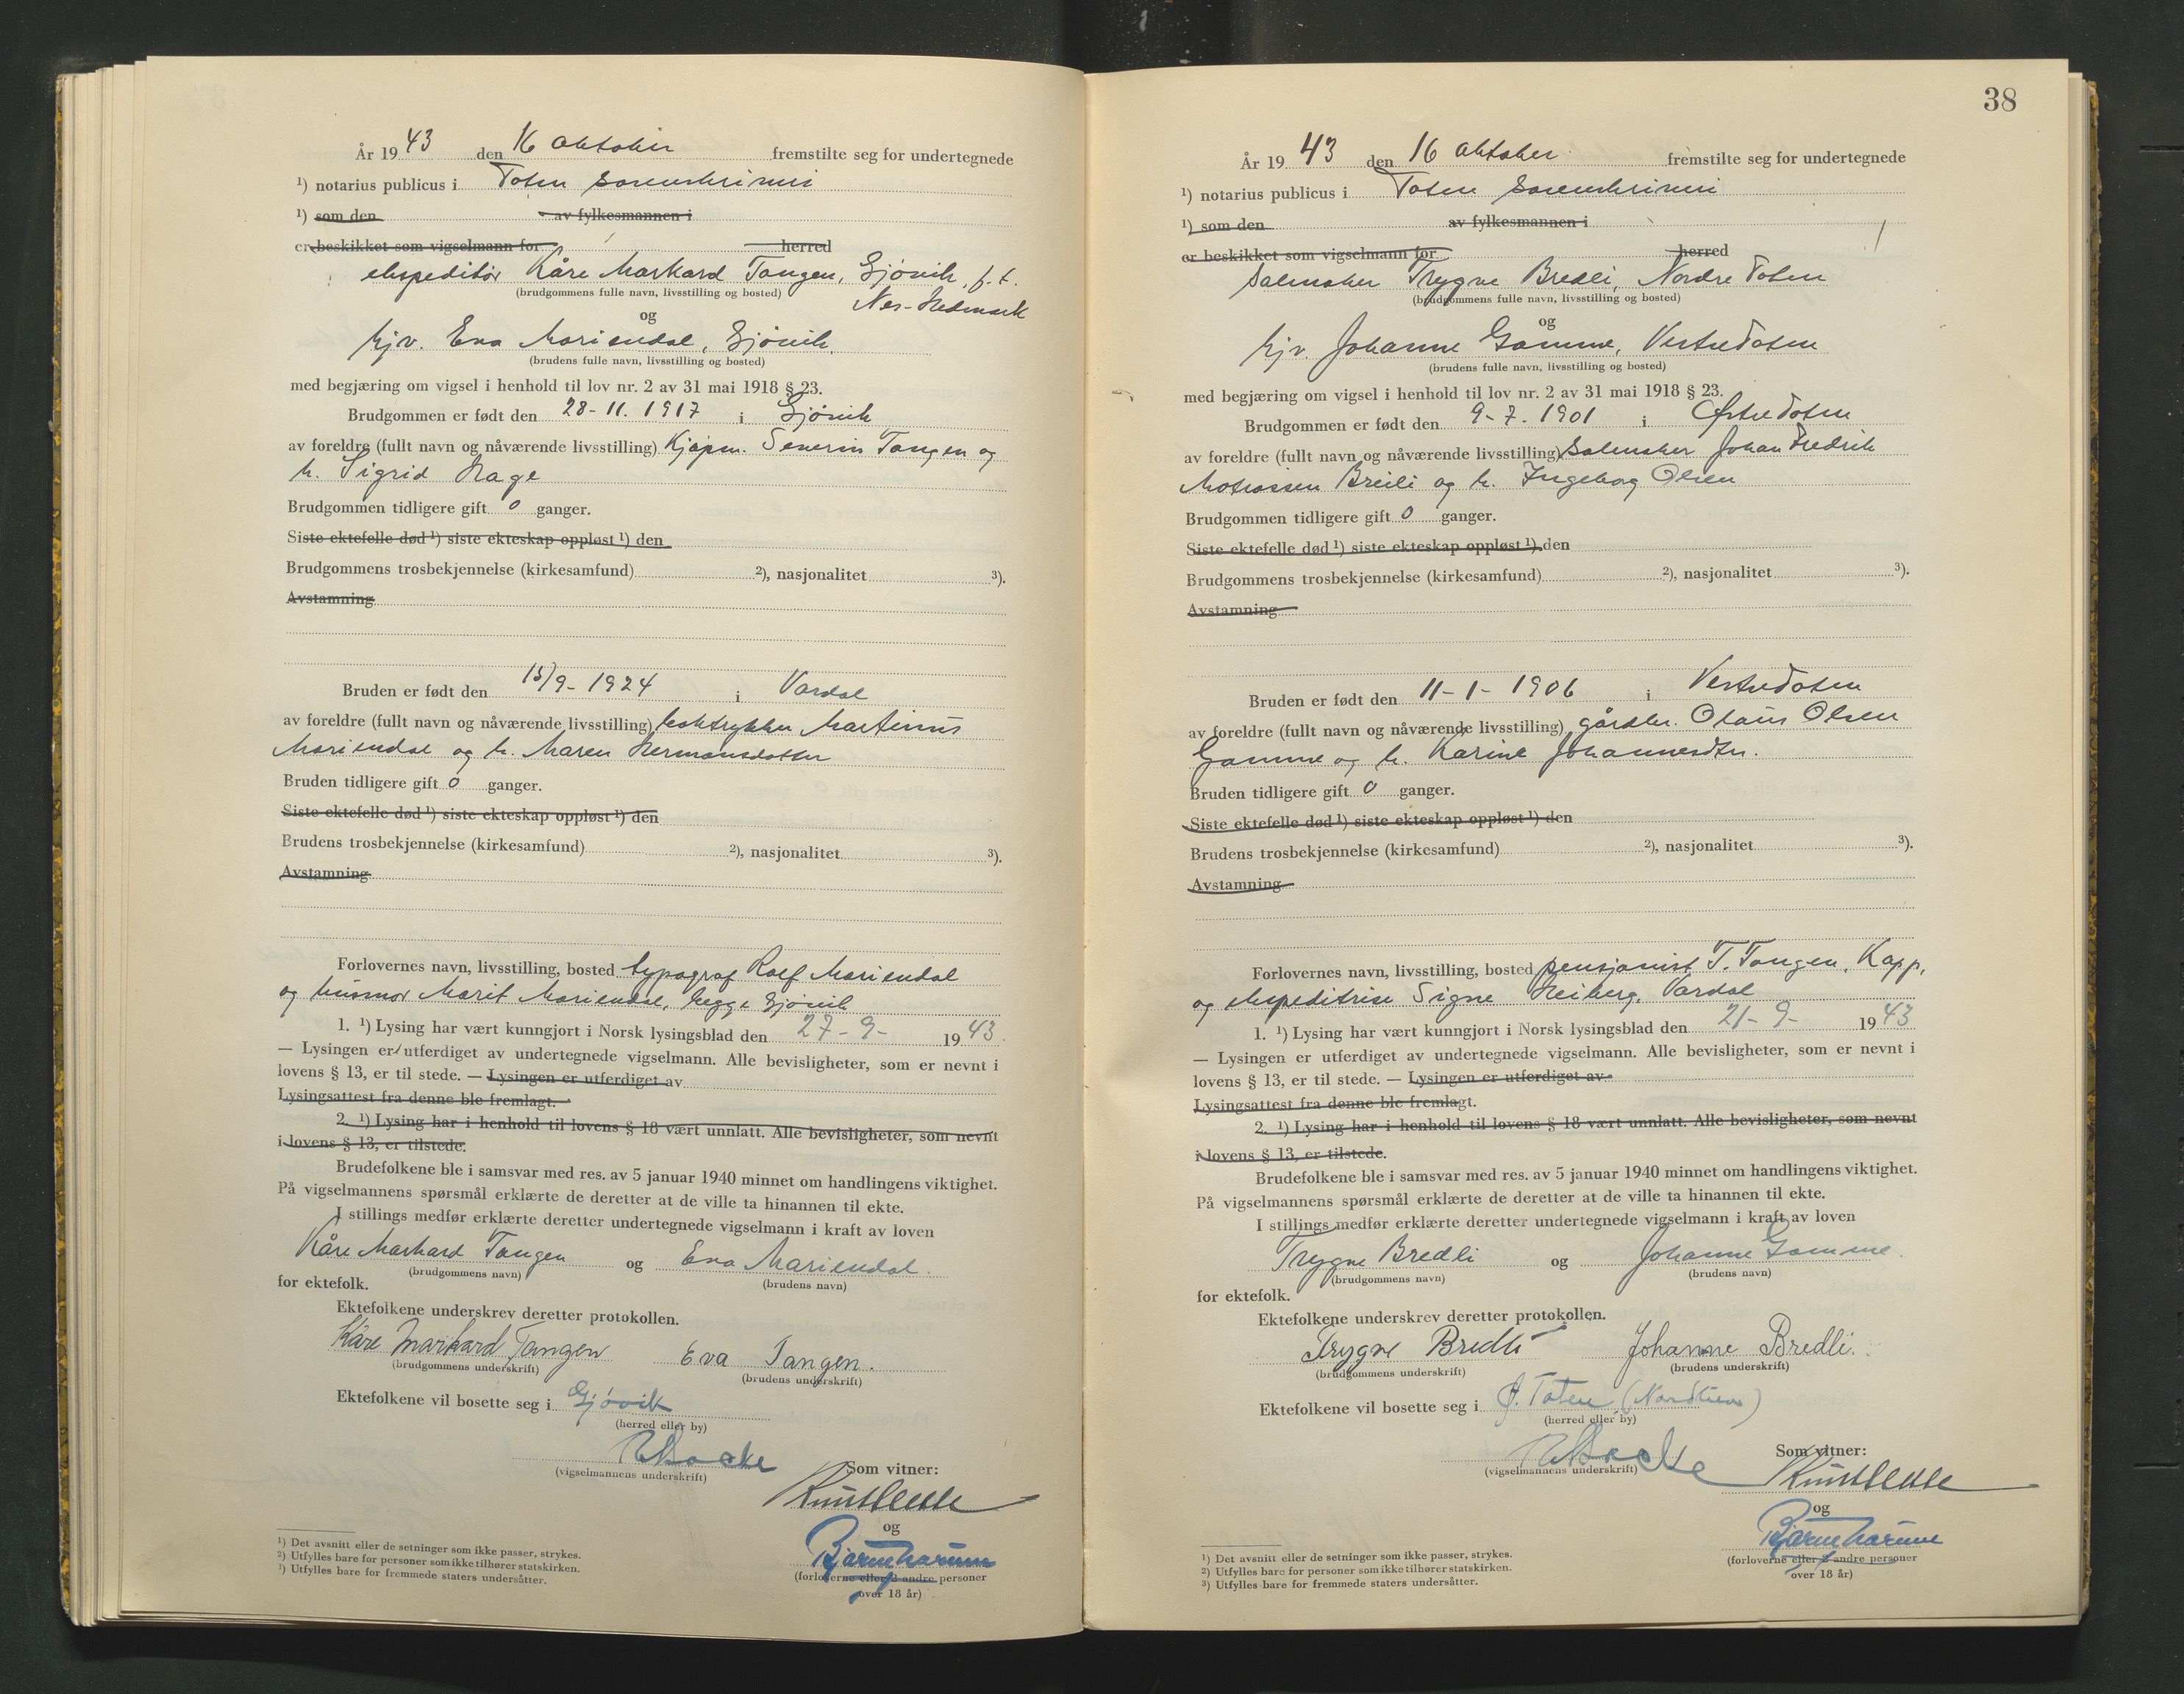 År 19 43 den 16 oktober fremstilte seg for undertegnede
¹) notarius publicus i Toten sorenskriveri
¹) som den av fylkesmannen i
er beskikket som vigselmann for herred
ekspeditör Kåre Markard Tangen, Gjövik, f.t.
(brudgommens fulle navn, livsstilling og bosted)
Nes-Hedmark
og
hjv. Eva Mariendal, Gjövik.
(brudens fulle navn, livsstilling og bosted)
med begjæring om vigsel i henhold til lov nr. 2 av 31 mai 1918 § 23.
Brudgommen er født den 28-11. 1917 i Gjövik
av foreldre (fullt navn og nåværende livsstilling) Kjøpm. Severin Tangen og
h. Sigrid Hage
Brudgommen tidligere gift 0 ganger.
Siste ektefelle død ¹) siste ekteskap oppløst ¹) den
Brudgommens trosbekjennelse (kirkesamfund) ²), nasjonalitet ³).
Avstamning
Bruden er født den 15/9- 1924 i Vardal
av foreldre (fullt navn og nåværende livsstilling) boktrykker Martinus
Mariendal og h. Maren Hermansdotter
Bruden tidligere gift 0 ganger.
Siste ektefelle død ¹) siste ekteskap oppløst ¹) den
Brudens trosbekjennelse (kirkesamfund) ²), nasjonalitet ³).
Avstamning
Forlovernes navn, livsstilling, bosted typograf Rolf Mariendal
og husmor Marit Mariendal, begge Gjövik
1. ¹) Lysing har vært kunngjort i Norsk lysingsblad den 27-9- 1943.
— Lysingen er utferdiget av undertegnede vigselmann. Alle bevisligheter, som er nevnt i
lovens § 13, er til stede. — Lysingen er utferdiget av
Lysingsattest fra denne ble fremlagt.
2. ¹) Lysing har i henhold til lovens § 18 vært unnlatt. Alle bevisligheter, som nevnt
i lovens § 13, er tilstede.
Brudefolkene ble i samsvar med res. av 5 januar 1940 minnet om handlingens viktighet.
På vigselmannens spørsmål erklærte de deretter at de ville ta hinannen til ekte.
I stillings medfør erklærte deretter undertegnede vigselmann i kraft av loven
Kåre Markard Tangen og Eva Mariendal.
(brudgommens navn) (brudens navn)
for ektefolk.
Ektefolkene underskrev deretter protokollen.
Kåre Markard Tangen Eva Tangen.
(brudgommens underskrift) (brudens underskrift)
Ektefolkene vil bosette seg i Gjövik
(herred eller by)
(vigselmannens underskrift)
Som vitner:
og
(forloverne eller 2 andre personer
over 18 år)
¹) Det avsnitt eller de setninger som ikke passer, strykes.
²) Utfylles bare for personer som ikke tilhører statskirken.
³) Utfylles bare for fremmede staters undersåtter.
38
År 19 43 den 16 oktober fremstilte seg for undertegnede
¹) notarius publicus i Toten sorenskriveri
¹) som den av fylkesmannen i
er beskikket som vigselmann for herred
Salmaker Trygve Bredli, Nordre Toten
(brudgommens fulle navn, livsstilling og bosted)
og
hjv. Johanne Gamme, Vestre Toten
(brudens fulle navn, livsstilling og bosted)
med begjæring om vigsel i henhold til lov nr. 2 av 31 mai 1918 § 23.
Brudgommen er født den 9-7. 1901 i Østre Toten
av foreldre (fullt navn og nåværende livsstilling) Salmaker Johan Fredrik
Breili og h. Ingeborg Olsen
Brudgommen tidligere gift 0 ganger.
Siste ektefelle død ¹) siste ekteskap oppløst ¹) den
Brudgommens trosbekjennelse (kirkesamfund) ²), nasjonalitet ³).
Avstamning
Bruden er født den 11-1-1906 i Vestre Toten
av foreldre (fullt navn og nåværende livsstilling) gårdbr. Olaus Olsen
Gamme og h. Karine Johannesdtr.
Bruden tidligere gift 0 ganger.
Siste ektefelle død ¹) siste ekteskap oppløst ¹) den
Brudens trosbekjennelse (kirkesamfund) ²), nasjonalitet ³).
Avstamning
Forlovernes navn, livsstilling, bosted pensjonist T. Tangen, Kapp,
og ekspeditrise Signe Heiberg, Vardal
1. ¹) Lysing har vært kunngjort i Norsk lysingsblad den 21-9- 1943
— Lysingen er utferdiget av undertegnede vigselmann. Alle bevisligheter, som er nevnt i
lovens § 13, er til stede. — Lysingen er utferdiget av
Lysingsattest fra denne ble fremlagt.
2. ¹) Lysing har i henhold til lovens § 18 vært unnlatt. Alle bevisligheter, som nevnt
i lovens § 13, er tilstede.
Brudefolkene ble i samsvar med res. av 5 januar 1940 minnet om handlingens viktighet.
På vigselmannens spørsmål erklærte de deretter at de ville ta hinannen til ekte.
I stillings medfør erklærte deretter undertegnede vigselmann i kraft av loven
Trygve Bredli og Johanne Gamme.
(brudgommens navn) (brudens navn)
for ektefolk.
Ektefolkene underskrev deretter protokollen.
Trygve Bredli Johanne Bredli.
(brudgommens underskrift) (brudens underskrift)
Ektefolkene vil bosette seg i Ø. Toten
(herred eller by)
(vigselmannens underskrift)
Som vitner:
og
(forloverne eller 2 andre personer
over 18 år)
¹) Det avsnitt eller de setninger som ikke passer, strykes.
²) Utfylles bare for personer som ikke tilhører statskirken.
³) Utfylles bare for fremmede staters undersåtter.